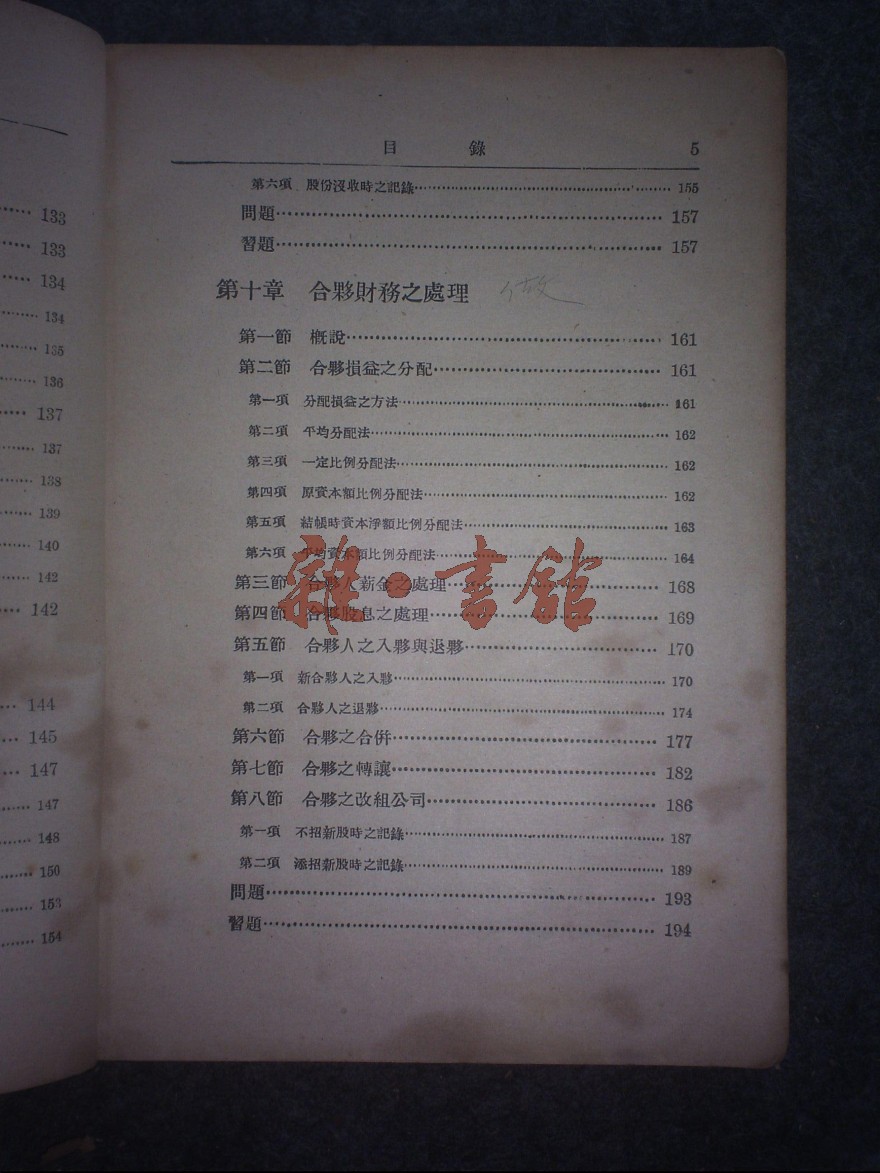 133
133
134
134
135
136
137
137
138
139
140
142
142
144
145
147
147
148
150
153
154
目錄 5
第六項 股份沒收時之記錄 155
問題 157
習題 157
第十章 合夥財務之處理 做
第一節 概說 161
第二節 合夥損益之分配 161
第一項 分配損益之方法 161
第二項 平均分配法 162
第三項 一定比例分配法 162
第四項 原資本額比例分配法 162
第五項 結帳時資本淨額比例分配法 163
第六項 平均資本額比例分配法 164
第三節 合夥人薪金之處理 168
第四節 合夥股息之處理 169
第五節 合夥人之入夥與退夥 170
第一項 新合夥人之入夥 170
第二項 合夥人之退夥 174
第六節 合夥之合併 177
第七節 合夥之轉讓 182
第八節 合夥之改組公司 186
第一項 不招新股時之記錄 187
第二項 添招新股時之記錄 189
問題 193
習題 194
雜·書館